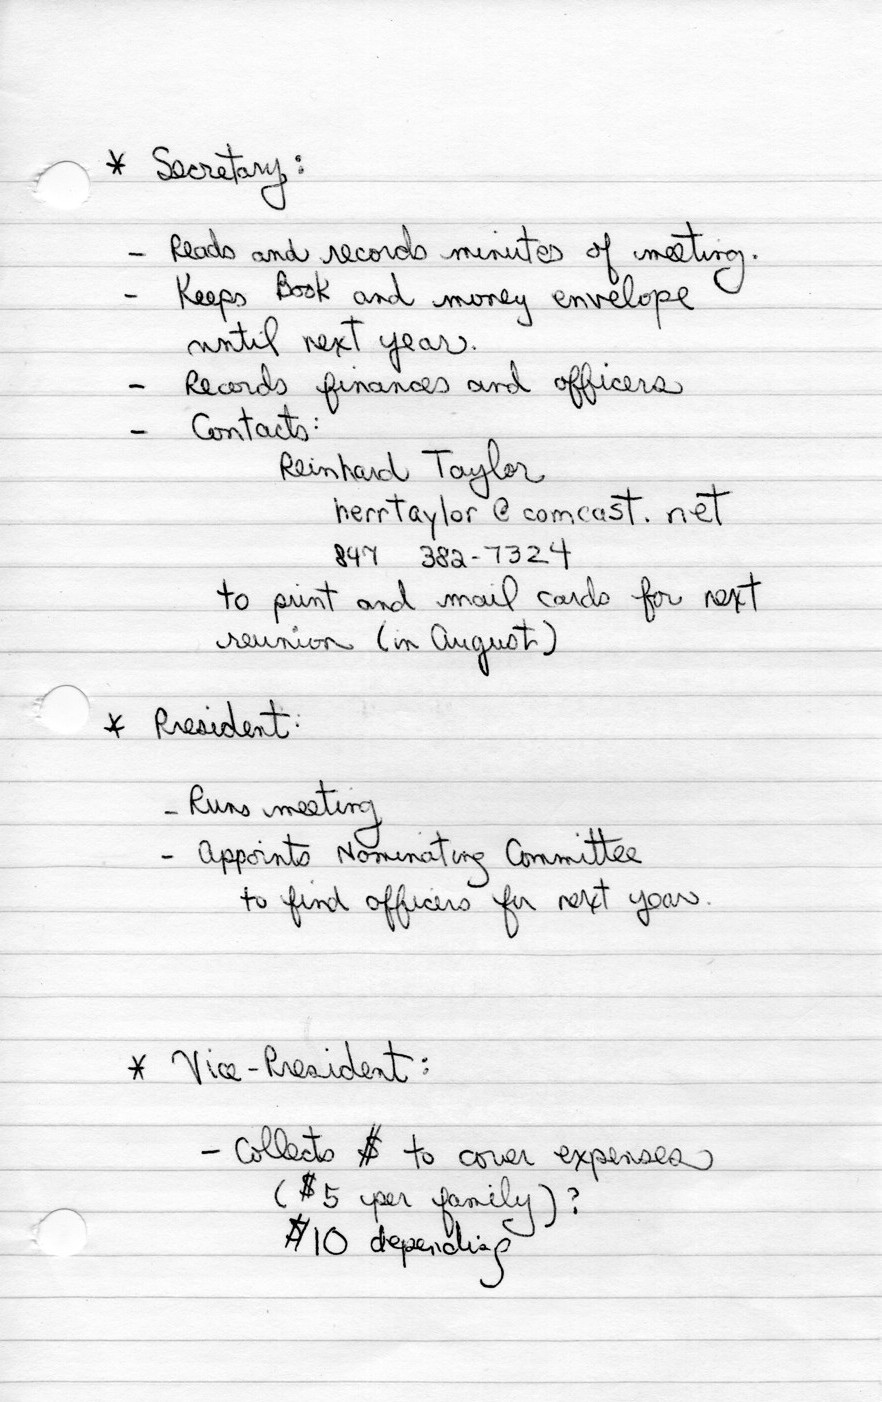 * Secretary:
- Reads and records minutes of meeting.
- Keeps Book and money envelope
until next year.
- Records finances and officers
- Contacts:
Reinhard Taylor
herrtaylor@comcast.net
847 382-7324
to print and mail cards for next
reunion (in August)
* President:
- Runs meeting
- Appoints Nominating Committee
to find officers for next year.
* Vice-President:
- Collects $ to cover expenses
($5 per family)?
$10 depending